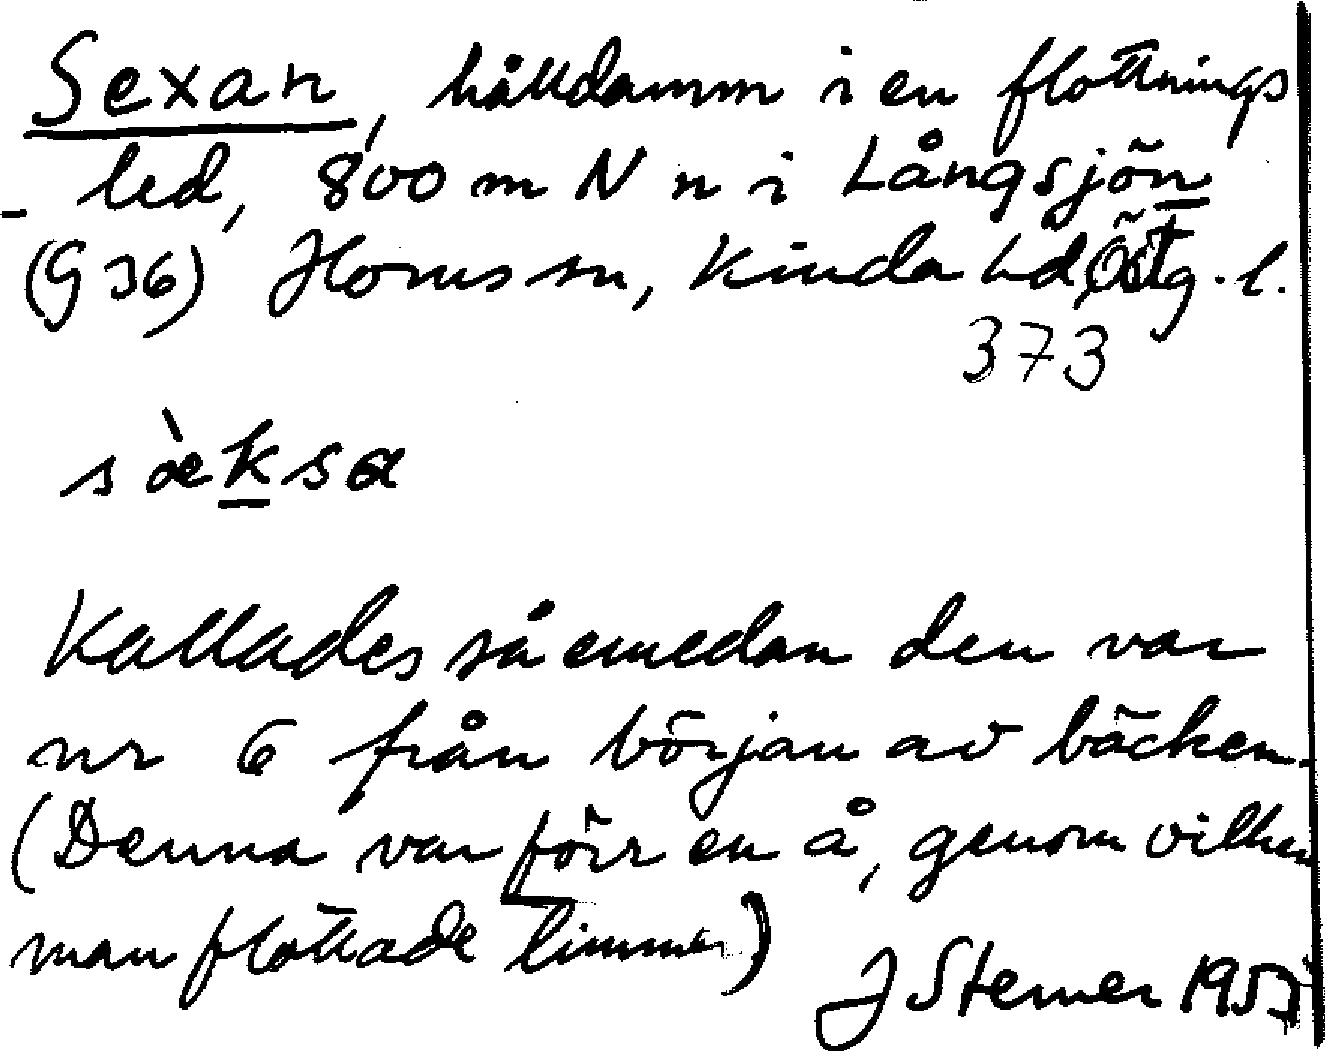 Sexan, hålldamm i en flottnings
led, 800 m N n i Långsjön
(G 36) Horns sn, Kinda hd, Östg. l.
373
sæ̀ksa
Kallades så emedan den var
nr 6 från början av bäcken.
(Denna var förr en å, genom vilken
man flottade timmer)
J Sterner